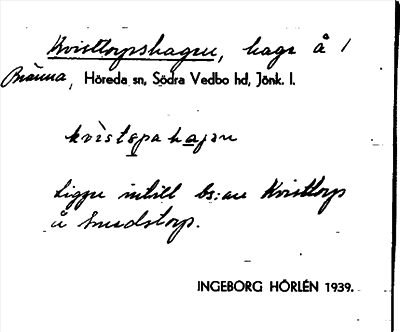 Kvisttorpshagen, hage å 1
Bränna, Höreda sn, Södra Vedbo hd, Jönk. l.
kvistɛpa hajən
Ligger intill bs:en Kvisttorp
å Smedstorp.
INGEBORG HÖRLÉN 1939.